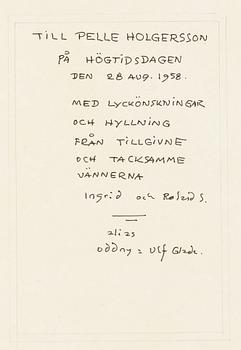 TILL PELLE HOLGERSSON
PÅ HÖGTIDSDAGEN
DEN 28 AUG. 1958.
MED LYCKÖNSKNINGAR
OCH HYLLNING
FRÅN TILLGIVNE
OCH TACKSAMME
VÄNNERNA
Ingrid och Roland S.
alias
Oddny = Ulf